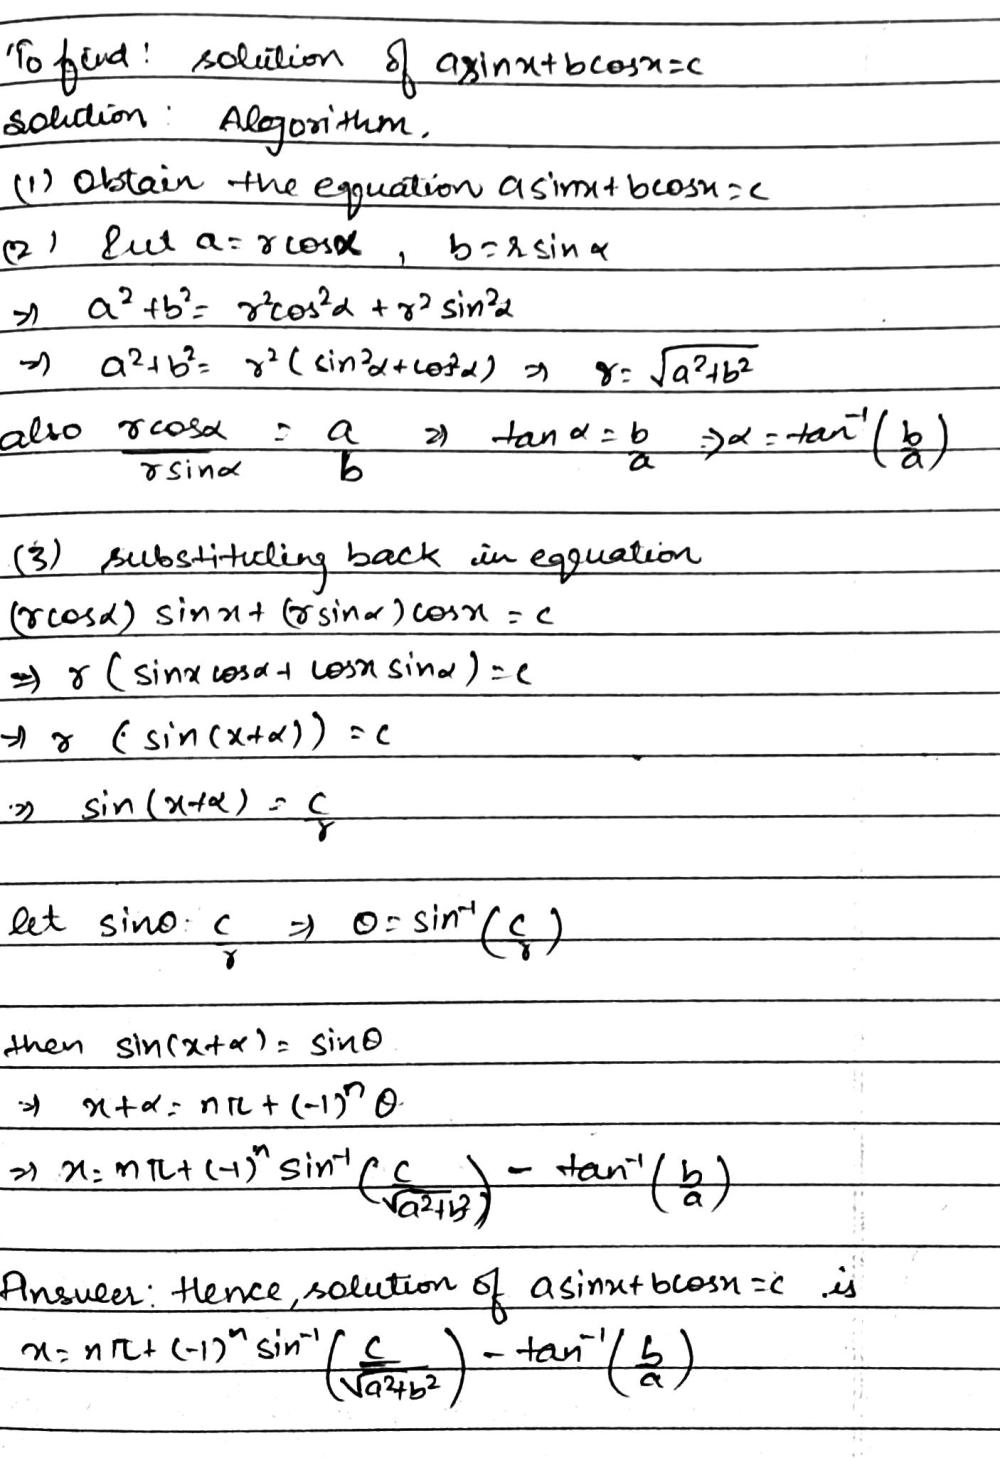 To find: solution of asinx+bcosx=c
Solution: Alogorithm.
(1) Obtain the eqquation asinx+bcosx=c
(2) Put a=rcosα, b=rsinα
⇒ a²+b²= r²cos²α + r² sin²α
⇒ a²+b²= r²(sin²α+cos²α) ⇒ r= √(a²+b²)
also rcosα/rsinα = a/b ⇒ tanα = b/a ⇒ α = tan⁻¹(b/a)
(3) substituting back in eqquation
(rcosα) sinx+ (rsinα)cosx = c
⇒ r (sinx cosα + cosx sinα) = c
⇒ r (sin(x+α)) = c
⇒ sin(x+α) = c/r
let sinθ = c/r ⇒ θ= sin⁻¹(c/r)
then sin(x+α) = sinθ
⇒ x+α= nπ + (-1)ⁿ θ
⇒ x= nπ+ (-1)ⁿ sin⁻¹(c/√(a²+b²)) - tan⁻¹(b/a)
Answer: Hence, solution of asinx+bcosx=c is
x= nπ+ (-1)ⁿ sin⁻¹(c/√(a²+b²)) - tan⁻¹(b/a)